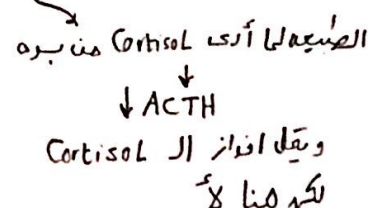 الطبيعه لما أدى Cortisol من بره
↓
↓ ACTH
ويقل افراز ال Cortisol
لكن هنا لأ